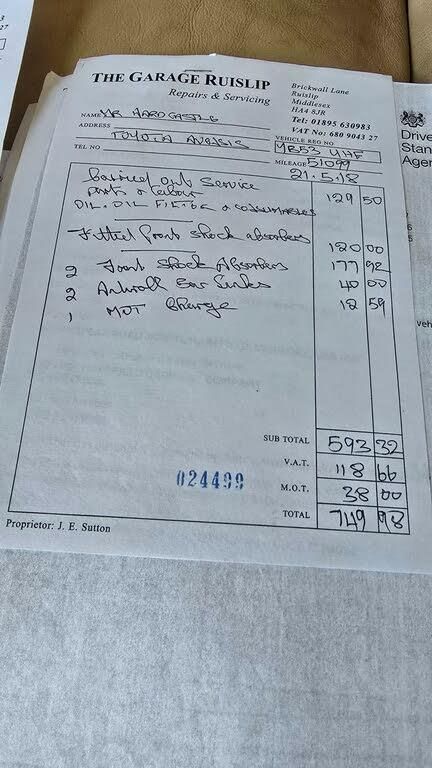 THE GARAGE RUISLIP
Repairs & Servicing
Brickwall Lane
Ruislip
Middlesex
HA4 8JR
Tel: 01895 630983
VAT No: 680 9043 27
NAME MR HARDCASTLE
ADDRESS
TOYOTA AVENSIS
TEL NO
VEHICLE REG NO
MILEAGE 51099
21.5.18
Carried out Service
parts & labour 129 50
OIL. OIL FILTER & CONSUMABLES
Fitted front shock absorbers
120 00
2 front shock Absorbers 177 92
2 Antiroll Bar Links 40 00
1 MOT Charge 18 59
SUB TOTAL 593 32
V.A.T. 118 66
024499
M.O.T. 38 00
TOTAL 749 98
Proprietor: J. E. Sutton
Drive
Stan
Agen
veh